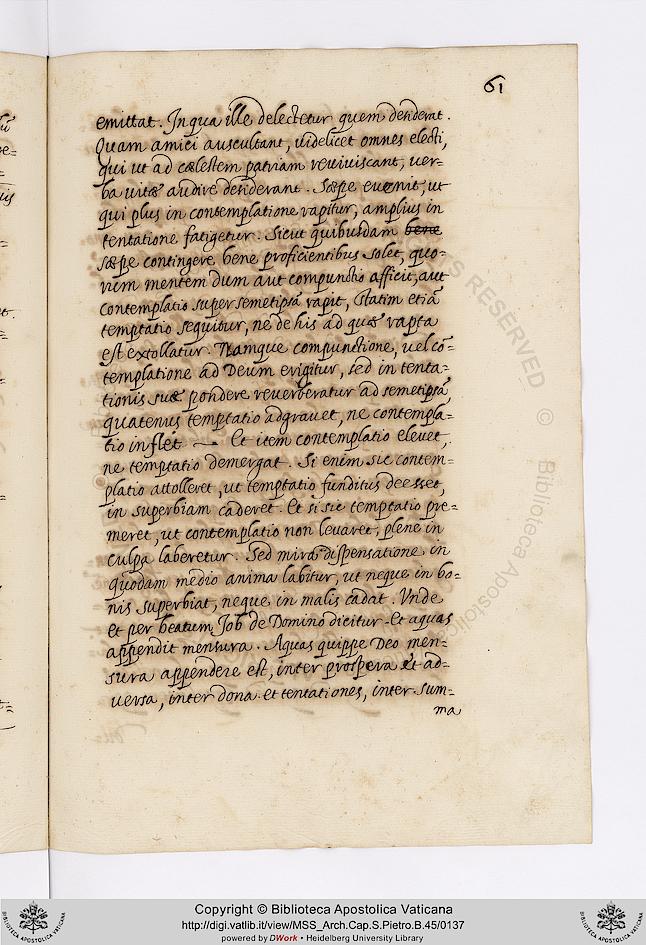 61
emittat. In qua ille delectetur quem desiderat.
Quam amici auscultant, videlicet omnes electi,
qui ut ad cælestem patriam reviviscant, ver=
ba vitæ audire desiderant. Sæpe evenit, ut
qui plus in contemplatione rapitur, amplius in
tentatione fatigetur. Sicut quibusdam bene
sæpe contingere bene proficientibus solet, quo=
rum mentem dum aut compunctio afficit, aut
contemplatio super semetipsā rapit, statim etiā
temptatio sequitur, ne de his ad quæ rapta
est extollatur. Namque compunctione, vel cō=
templatione ad Deum erigitur, sed in tenta=
tionis suæ pondere reverberatur ad semetipsā,
quatenus temptatio adgravet, ne contempla=
tio inflet — Et item contemplatio elevet,
ne temptatio demergat. Si enim sic contem=
platio attolleret, ut temptatio funditus deesset,
in superbiam caderet. Et si sic temptatio pre=
meret, ut contemplatio non levaret, plene in
culpā laberetur. Sed mira dispensatione in
quodam medio anima labitur, ut neque in bo=
nis superbiat, neque in malis cadat. Unde
et per beatum Job de Domino dicitur. Et aquas
appendit mensura. Aquas quippe Deo men=
sura appendere est, inter prospera et ad=
versa, inter dona et tentationes, inter sum=
ma
Copyright © Biblioteca Apostolica Vaticana
http://digi.vatlib.it/view/MSS_Arch.Cap.S.Pietro.B.45/0137
powered by DWork • Heidelberg University Library